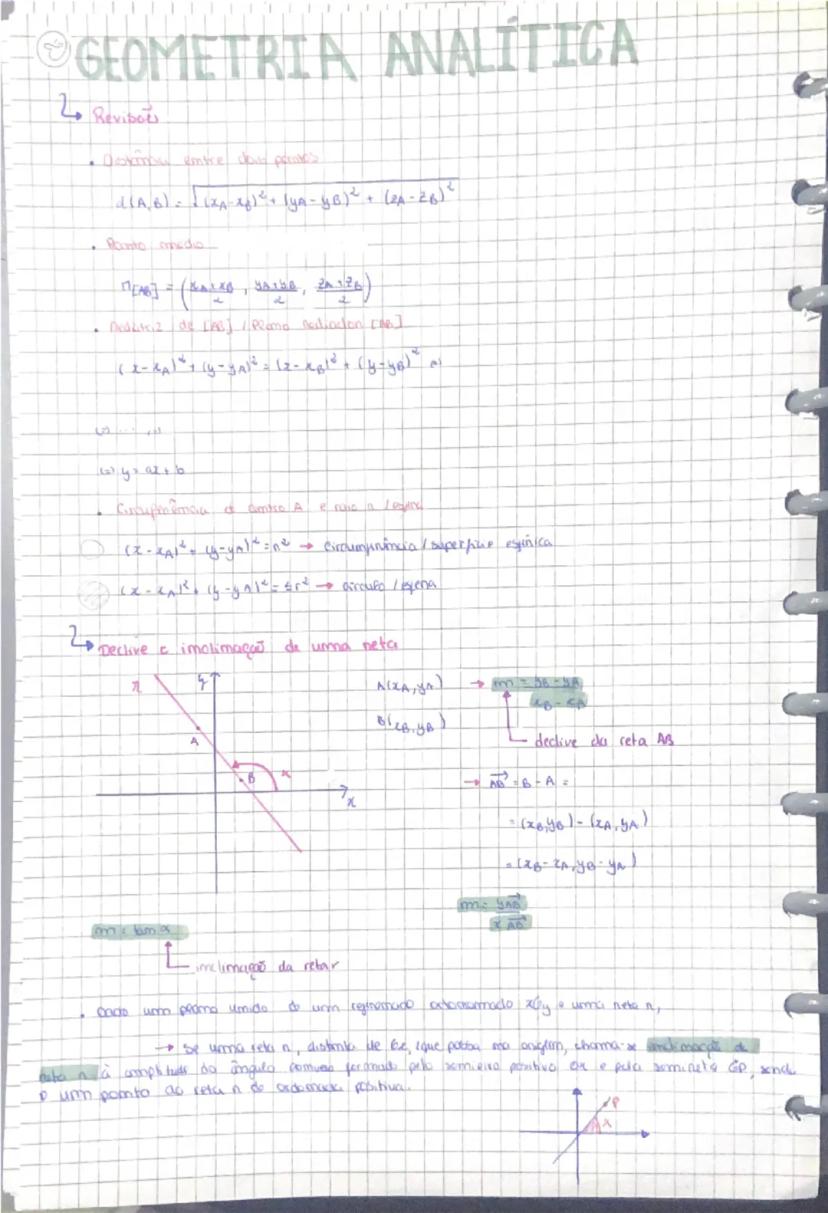 GEOMETRIA ANALÍTICA
↳ Revisões
• Distância entre dois pontos
d(A,B) = √((xA-xB)² + (yA-yB)² + (zA-zB)²)
• Ponto médio
M[AB] = ((xA+xB)/2, (yA+yB)/2, (zA+zB)/2)
• Mediatriz de [AB] / Plano mediador [AB]
(x-xA)² + (y-yA)² = (x-xB)² + (y-yB)² (=)
(=) ... (=)
(=) y = ax + b
• Circunferência de centro A e raio r / esfera
(x-xA)² + (y-yA)² = r² → circunferência / superfície esférica
(x-xA)² + (y-yA)² = ≤r² → círculo / esfera
↳ Declive e inclinação de uma reta
r y A(xA, yA) → m = (yB-yA)/(xB-xA)
A B(xB, yB)
declive da reta AB
B α
x
→ AB⃗ = B - A =
= (xB, yB) - (xA, yA)
= (xB-xA, yB-yA)
m = yAB⃗ / xAB⃗
m = tan α
inclinação da reta r
• Dado um plano munido de um referencial ortonormado xOy e uma reta r,
→ Se uma reta r, distinta de Ox, que passa na origem, chama-se inclinação da
reta r à amplitude do ângulo convexo formado pelo semieixo positivo Ox e pela semirreta ȮP, sendo
P um ponto da reta r de ordenada positiva.
P
α